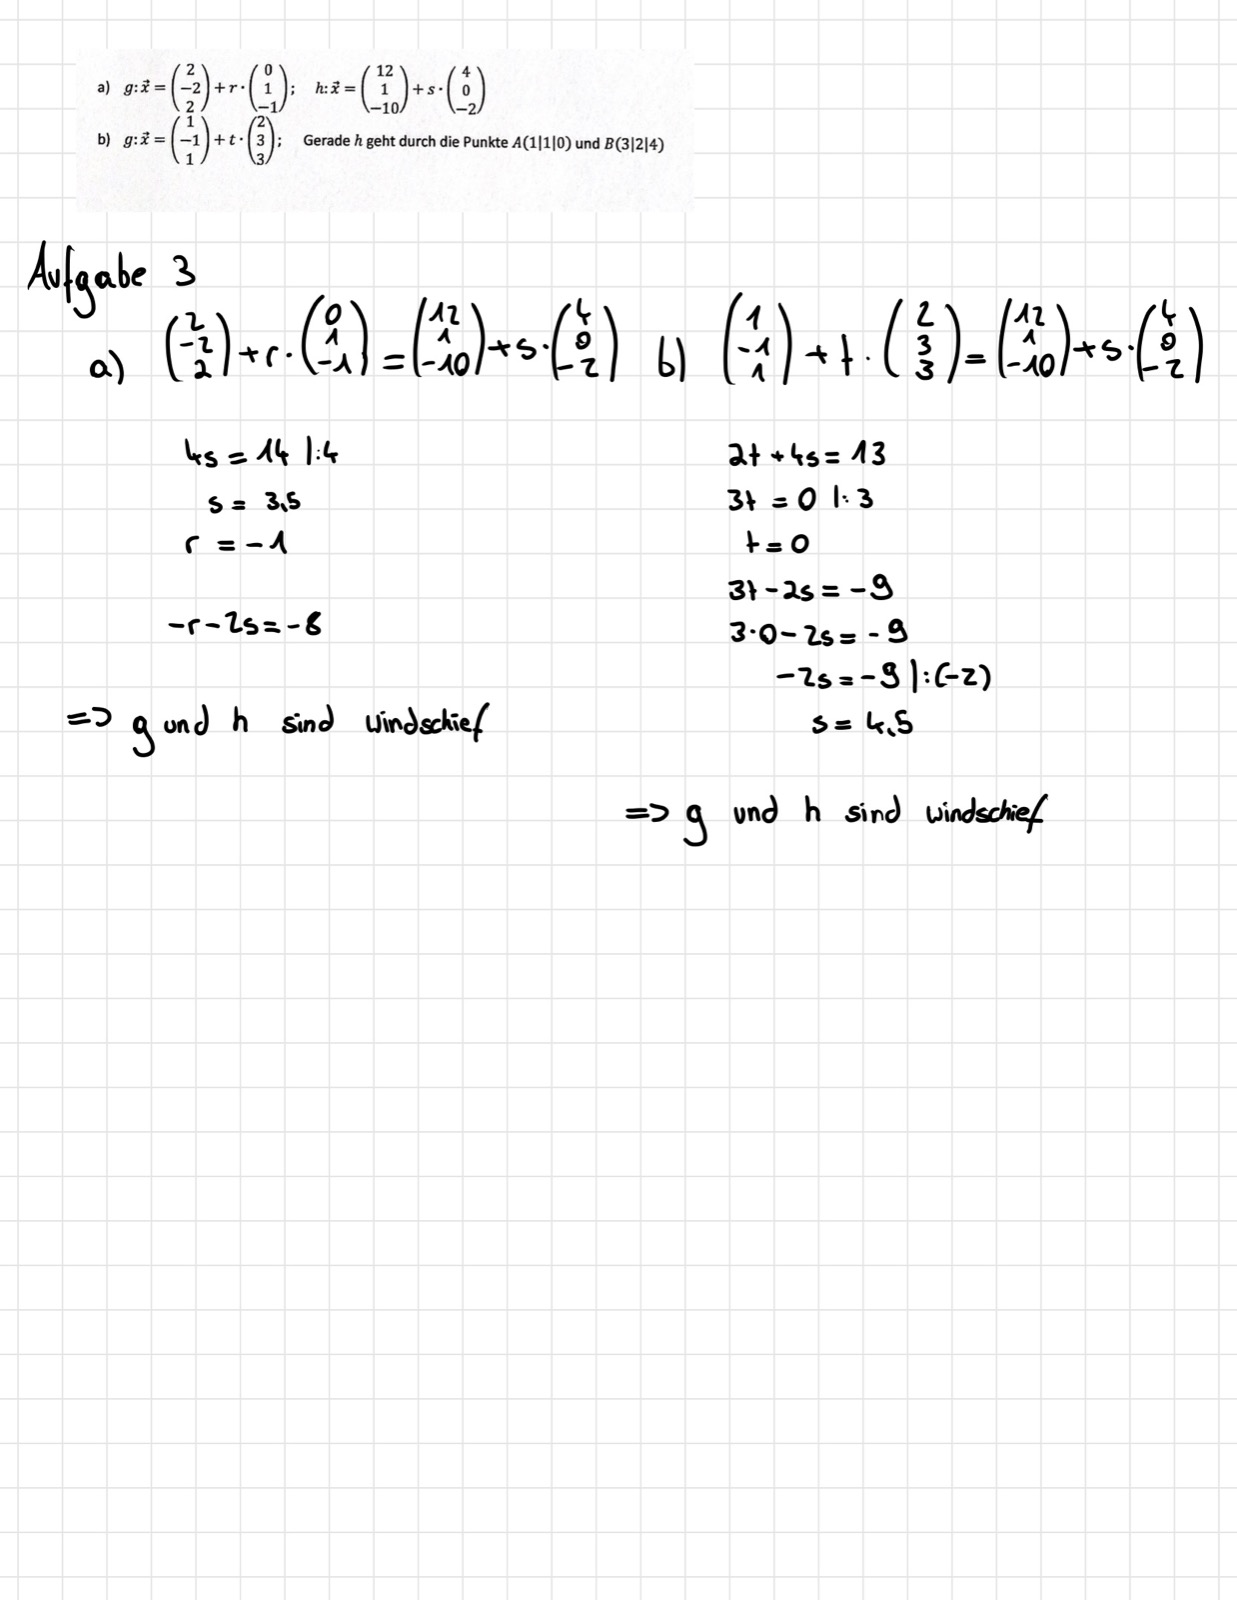 a) g: x⃗ = (2 -2 2) + r · (0 1 -1); h: x⃗ = (12 1 -10) + s · (4 0 -2)
b) g: x⃗ = (1 -1 1) + t · (2 3 3); Gerade h geht durch die Punkte A(1|1|0) und B(3|2|4)
Aufgabe 3
a) (2 -2 2) + r · (0 1 -1) = (12 1 -10) + s · (4 0 -2)
4s = 14 |:4
s = 3,5
r = -1
-r - 2s = -8
=> g und h sind windschief
b) (1 -1 1) + t · (2 3 3) = (12 1 -10) + s · (4 0 -2)
2t + 4s = 13
3t = 0 |: 3
t = 0
3t - 2s = -9
3·0 - 2s = -9
-2s = -9 |:(-2)
s = 4,5
=> g und h sind windschief